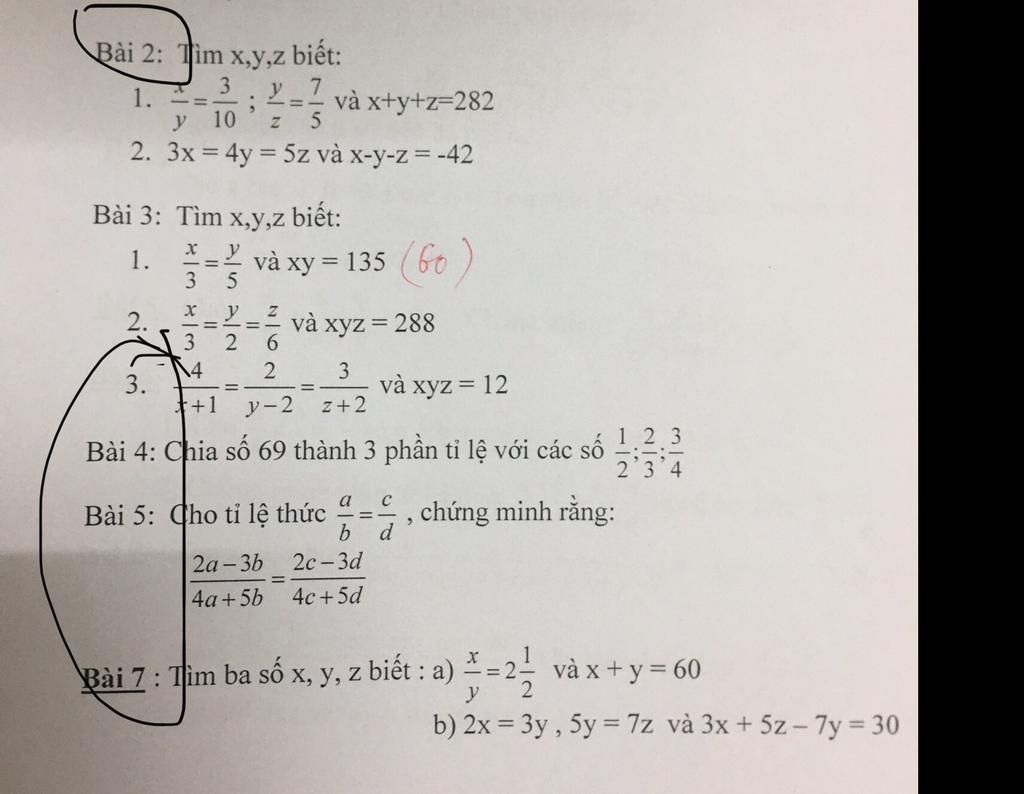 Bài 2: Tìm x,y,z biết:
1. x/y = 3/10 ; y/z = 7/5 và x+y+z=282
2. 3x = 4y = 5z và x-y-z = -42
Bài 3: Tìm x,y,z biết:
1. x/3 = y/5 và xy = 135 (60)
2. x/3 = y/2 = z/6 và xyz = 288
3. 4/x+1 = 2/y−2 = 3/z+2 và xyz = 12
Bài 4: Chia số 69 thành 3 phần tỉ lệ với các số 1/2; 2/3; 3/4
Bài 5: Cho tỉ lệ thức a/b = c/d , chứng minh rằng:
2a−3b/4a+5b = 2c−3d/4c+5d
Bài 7 : Tìm ba số x, y, z biết : a) x/y = 2 1/2 và x + y = 60
b) 2x = 3y , 5y = 7z và 3x + 5z – 7y = 30